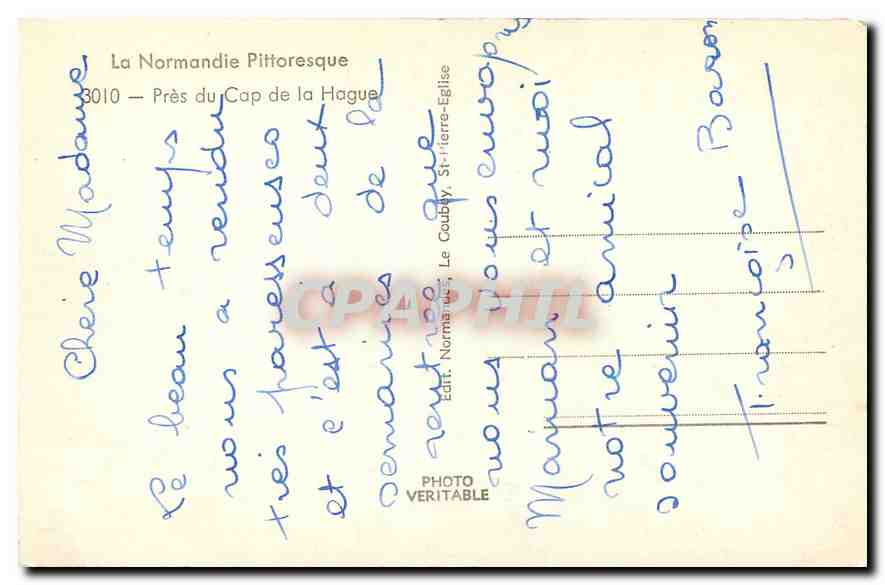 La Normandie Pittoresque
3010 — Près du Cap de la Hague
Edit. Normandes, Le Goubey, St-Pierre-Eglise
PHOTO
VERITABLE
CPAPHIL
Chère Madame
Le beau temps
nous a rendu
très paresseuses
et c'est à dent
semaines de la
rentrée que
nous vous envoyons
Maman et moi
notre amical
souvenir
Françoise Baron